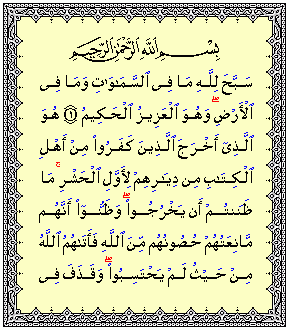 بِسْمِ ٱللَّهِ ٱلرَّحْمَٰنِ ٱلرَّحِيمِ
سَبَّحَ لِلَّهِ مَا فِى ٱلسَّمَٰوَٰتِ وَمَا فِى
ٱلْأَرْضِ ۖ وَهُوَ ٱلْعَزِيزُ ٱلْحَكِيمُ ۝١ هُوَ
ٱلَّذِىٓ أَخْرَجَ ٱلَّذِينَ كَفَرُوا۟ مِنْ أَهْلِ
ٱلْكِتَٰبِ مِن دِيَٰرِهِمْ لِأَوَّلِ ٱلْحَشْرِ ۚ مَا
ظَنَنتُمْ أَن يَخْرُجُوا۟ ۖ وَظَنُّوٓا۟ أَنَّهُم
مَّانِعَتُهُمْ حُصُونُهُم مِّنَ ٱللَّهِ فَأَتَىٰهُمُ ٱللَّهُ
مِنْ حَيْثُ لَمْ يَحْتَسِبُوا۟ ۖ وَقَذَفَ فِى